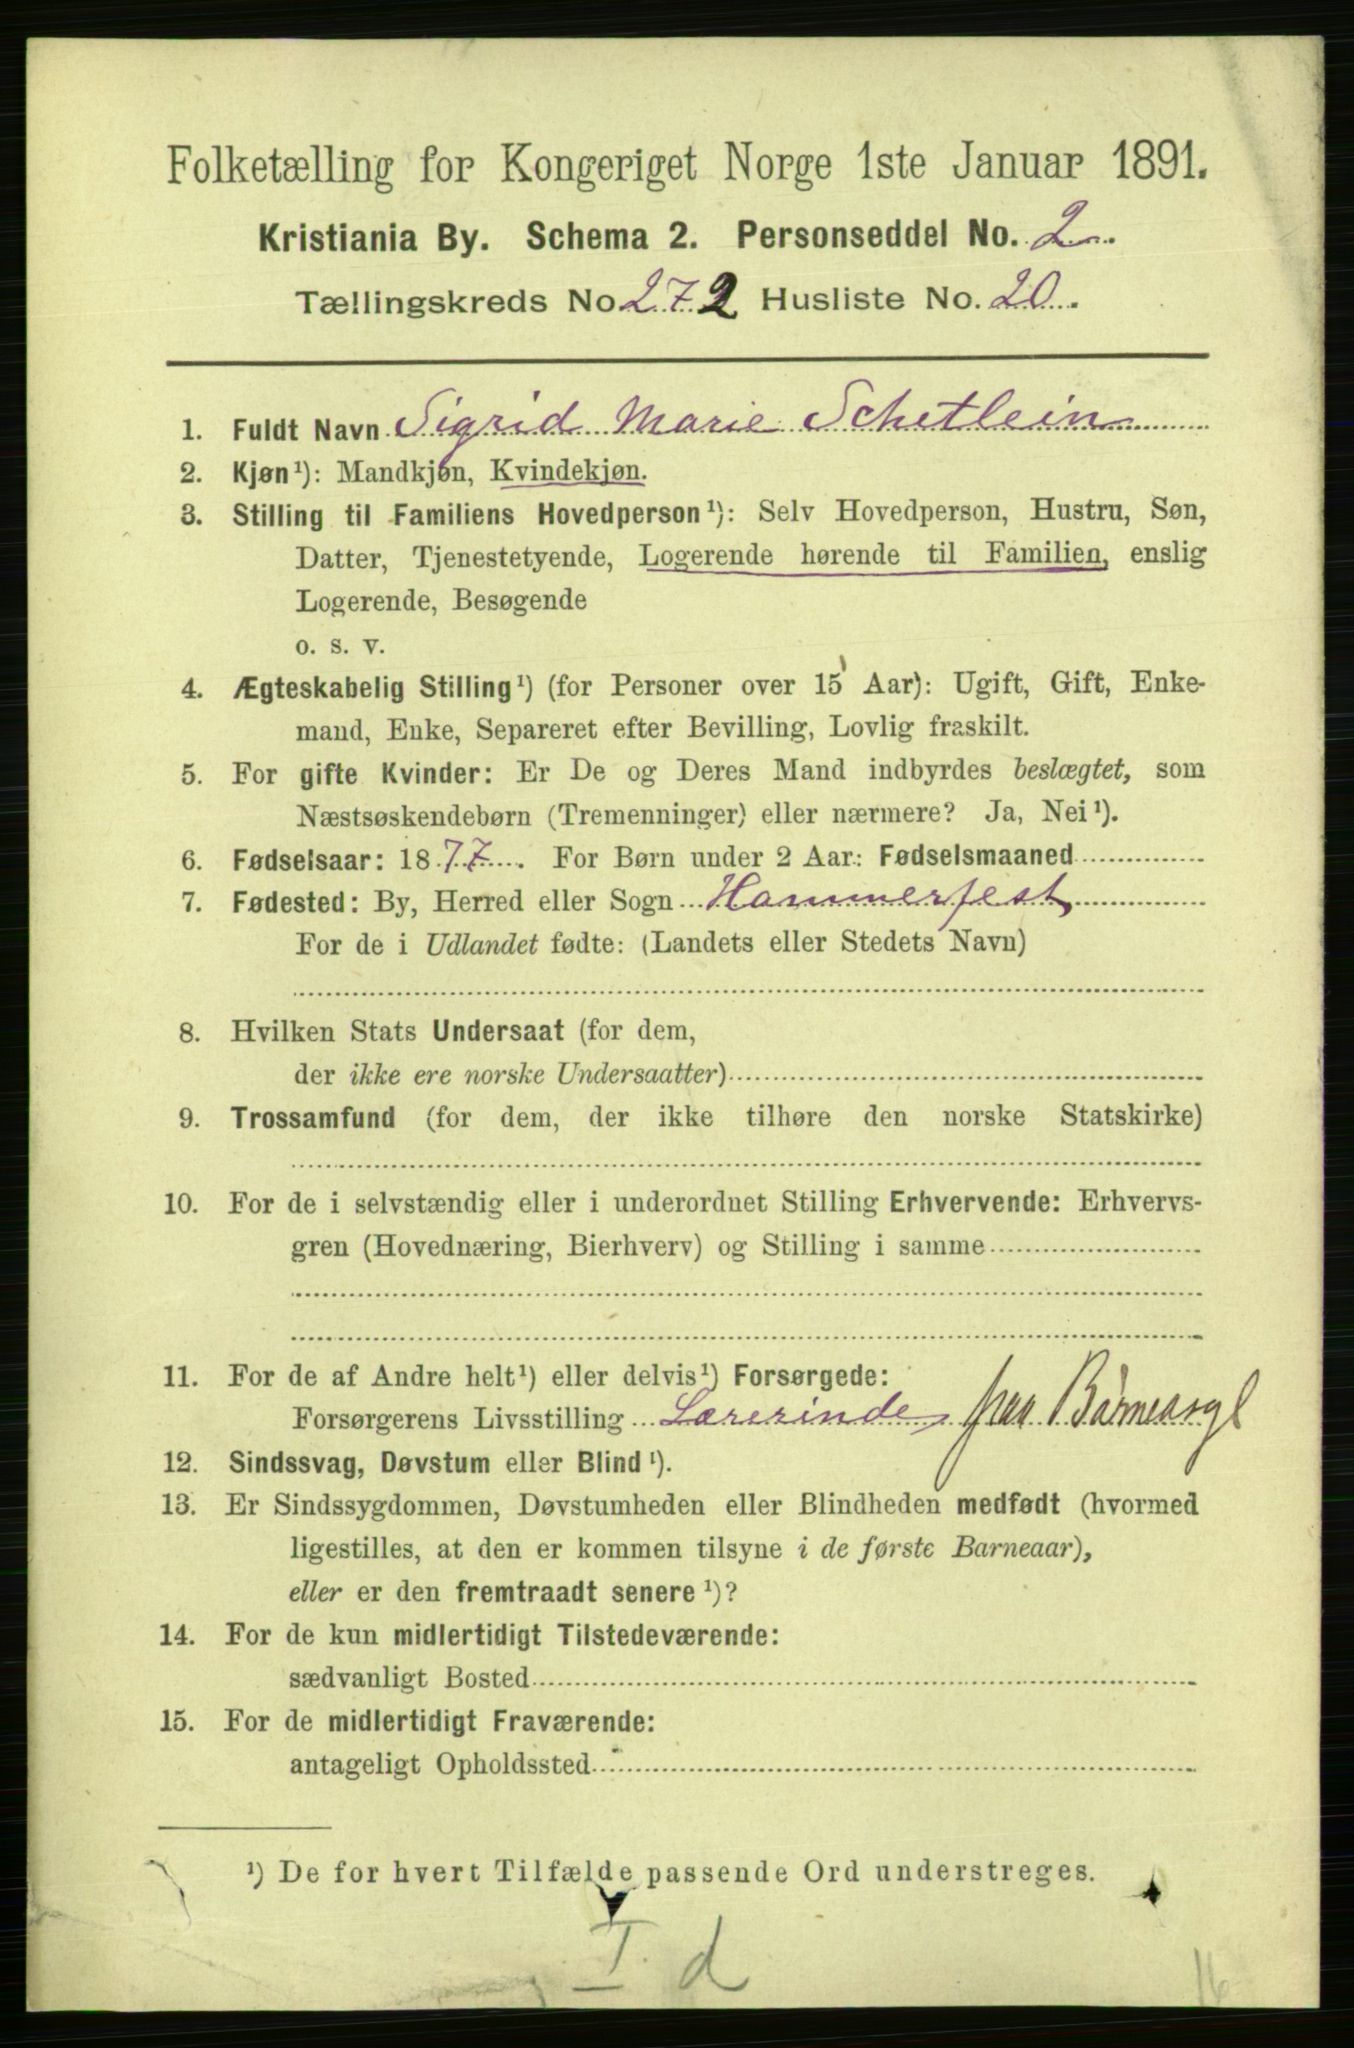 Folketælling for Kongeriget Norge 1ste Januar 1891.
Kristiania By. Schema 2. Personseddel No. 2.
Tællingskreds No 272 Husliste No. 20.
1. Fuldt Navn Sigrid Marie Schetlein
2. Kjøn¹): Mandkjøn, Kvindekjøn.
3. Stilling til Familiens Hovedperson¹): Selv Hovedperson, Hustru, Søn,
Datter, Tjenestetyende, Logerende hørende til Familien, enslig
Logerende, Besøgende
o. s. v.
4. Ægteskabelig Stilling¹) (for Personer over 15 Aar): Ugift, Gift, Enke-
mand, Enke, Separeret efter Bevilling, Lovlig fraskilt.
5. For gifte Kvinder: Er De og Deres Mand indbyrdes beslægtet, som
Næstsøskendebørn (Tremenninger) eller nærmere? Ja, Nei¹).
6. Fødselsaar: 1877. For Børn under 2 Aar: Fødselsmaaned
7. Fødested: By, Herred eller Sogn Hammerfest
For de i Udlandet fødte: (Landets eller Stedets Navn)
8. Hvilken Stats Undersaat (for dem,
der ikke ere norske Undersaatter)
9. Trossamfund (for dem, der ikke tilhøre den norske Statskirke)
10. For de i selvstændig eller i underordnet Stilling Erhvervende: Erhvervs-
gren (Hovednæring, Bierhverv) og Stilling i samme
11. For de af Andre helt¹) eller delvis¹) Forsørgede:
Forsørgerens Livsstilling Lærerinde paa Børneasyl
12. Sindssvag, Døvstum eller Blind¹).
13. Er Sindssygdommen, Døvstumheden eller Blindheden medfødt (hvormed
ligestilles, at den er kommen tilsyne i de første Barneaar),
eller er den fremtraadt senere¹)?
14. For de kun midlertidigt Tilstedeværende:
sædvanligt Bosted
15. For de midlertidigt Fraværende:
antageligt Opholdssted
¹) De for hvert Tilfælde passende Ord understreges.
I. d
16